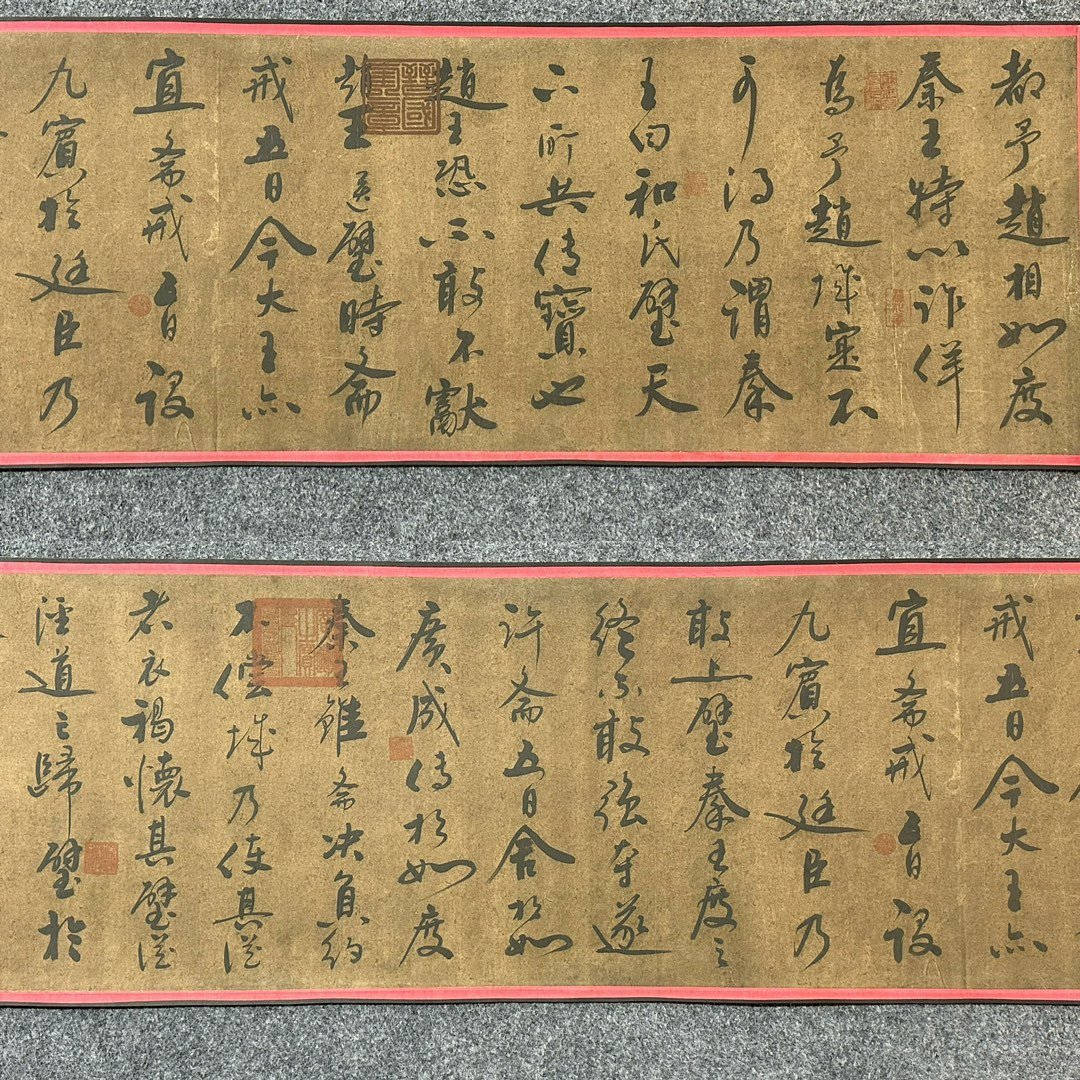 都予趙相如度
秦王特以詐佯
為予趙城寔不
可得乃謂秦
王曰和氏璧天
下所共傳寶也
趙王恐不敢不獻
趙王送璧時齋
戒五日今大王亦
宜齋戒五日設
九賓於廷臣乃
戒五日今大王亦
宜齋戒五日設
九賓於廷臣乃
敢上璧秦王度之
終不敢強奪遂
許齋五日舍相如
廣成傳相如度
秦王雖齋決負約
不償城乃使其從
者衣褐懷其璧從
徑道亡歸璧於